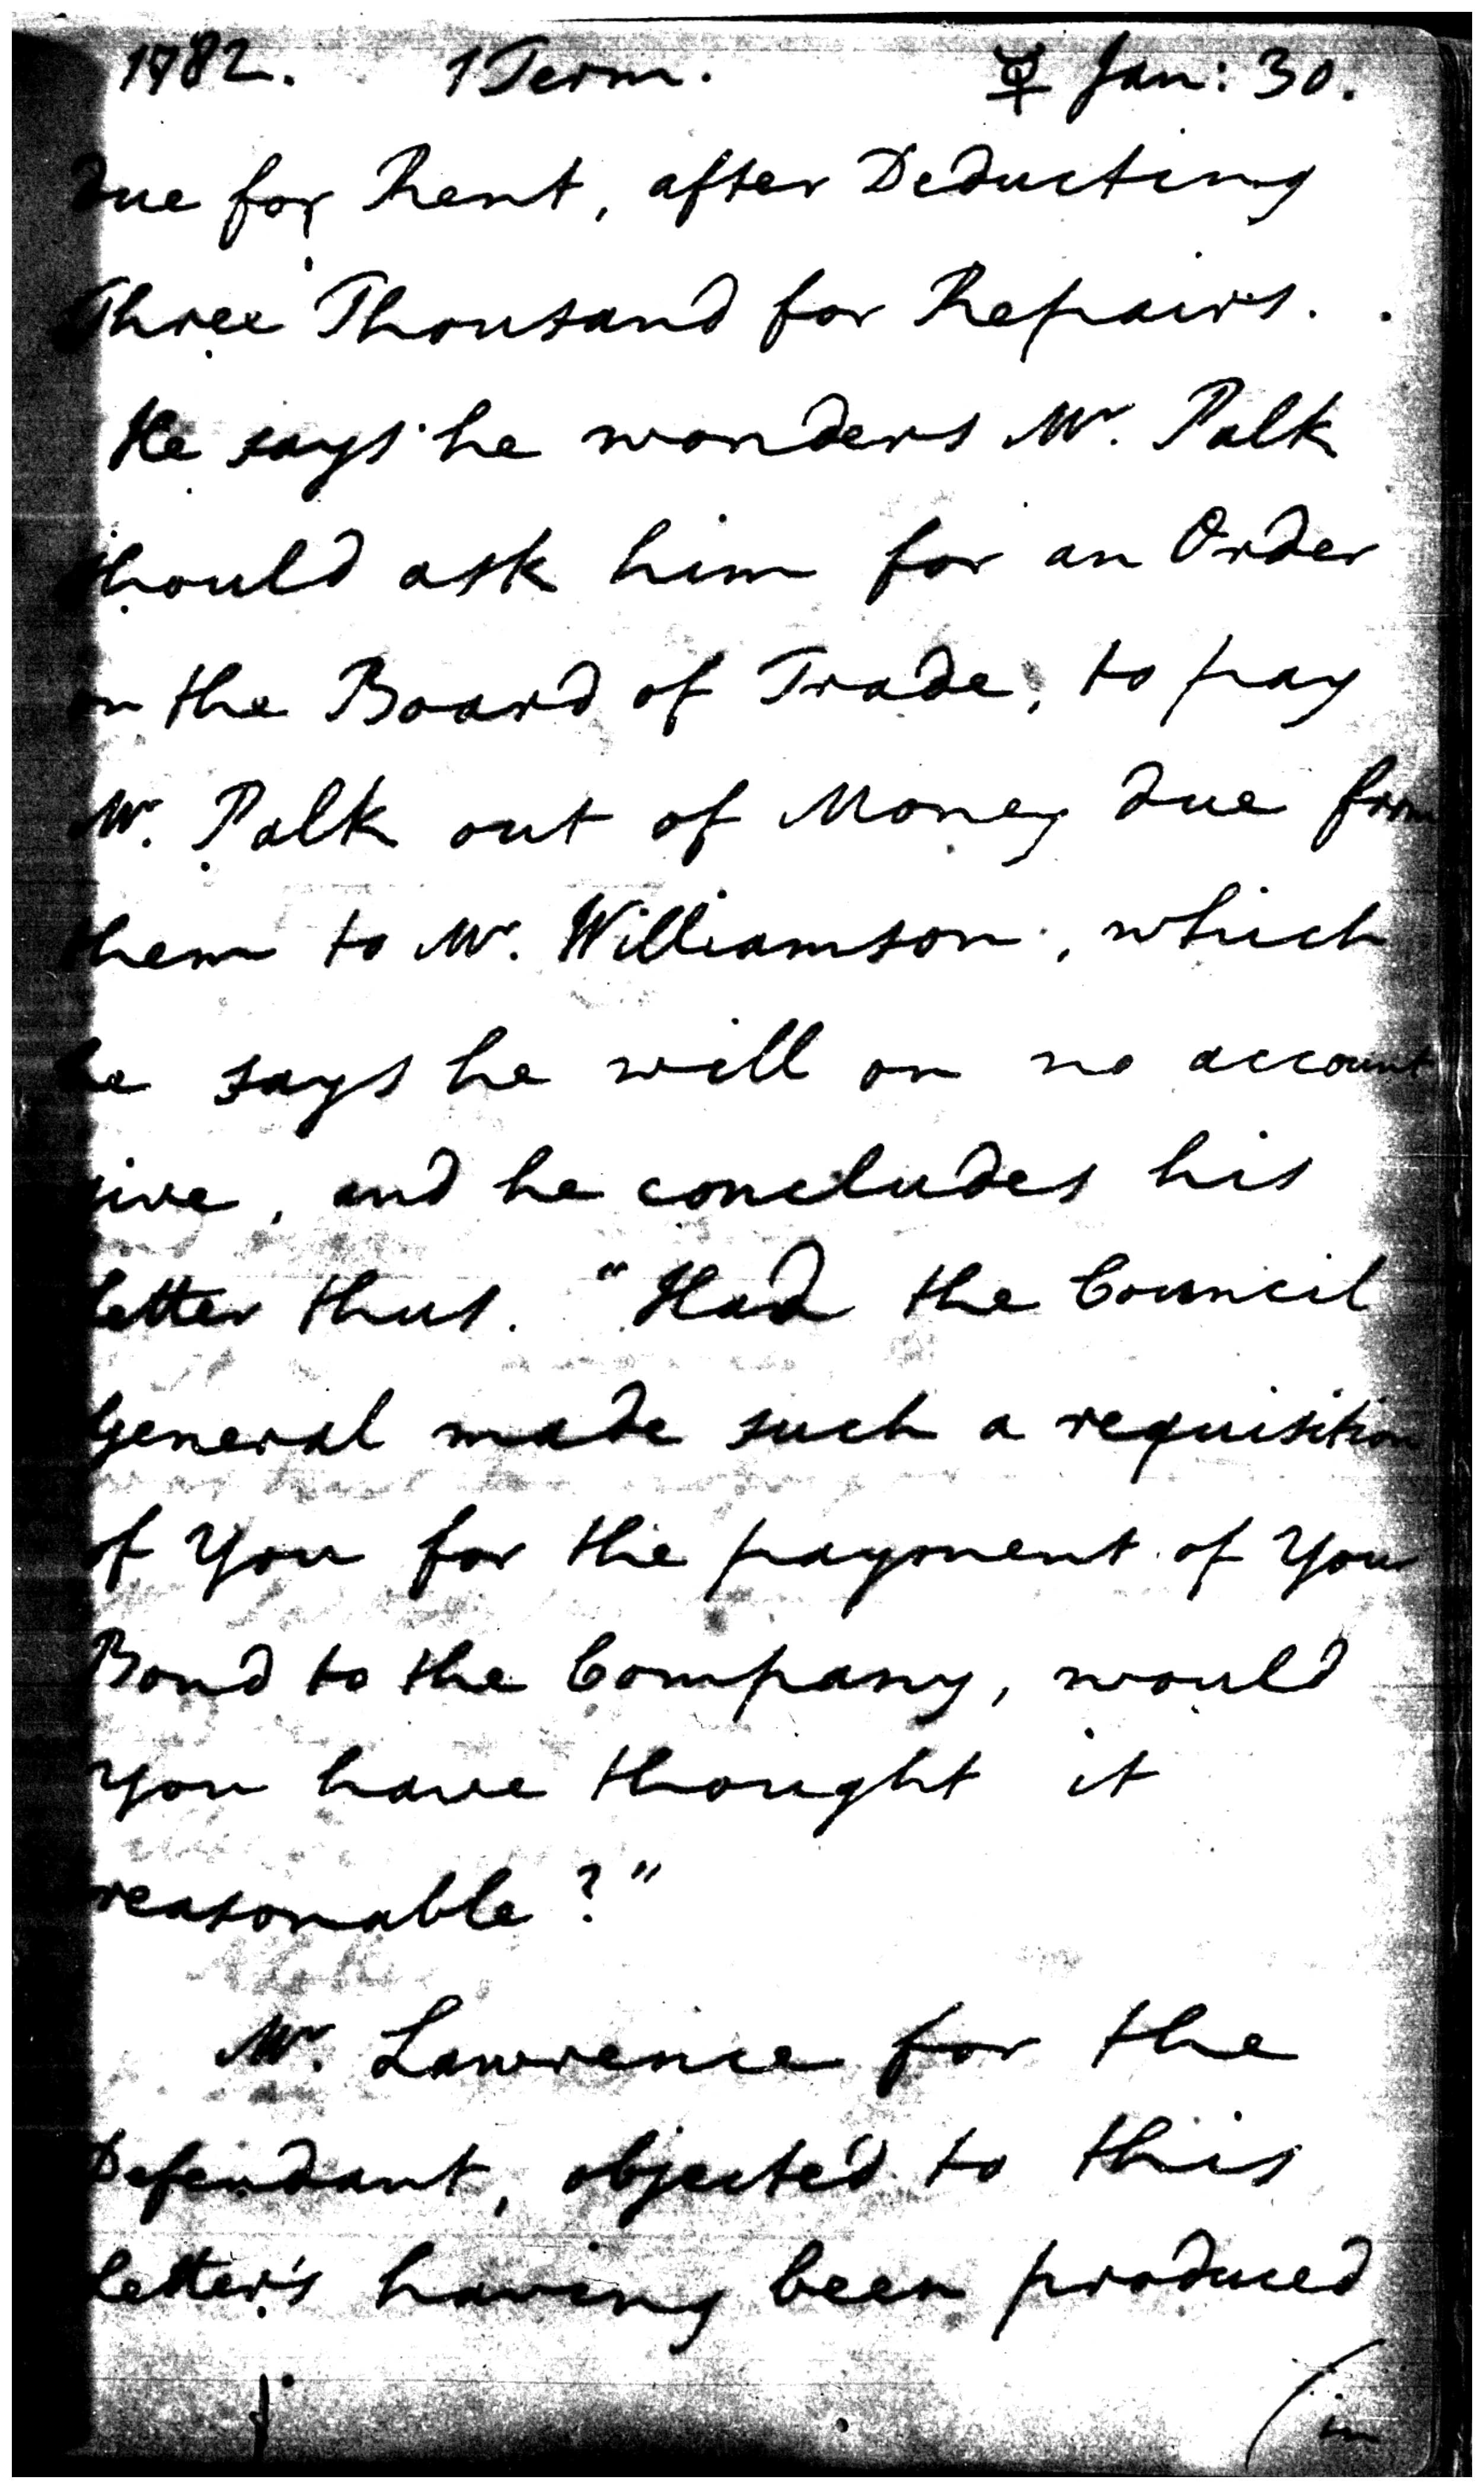 1782. 1 Term. ☿ Jan: 30.
due for Rent, after Deducting
Three Thousand for Repairs.
He says he wonders Mr. Palk
should ask him for an Order
on the Board of Trade, to pay
Mr. Palk out of Money due from
them to Mr. Williamson, which
he says he will on no account
give, and he concludes his
Letter thus. "Had the Council
General made such a requisition
of You for the payment of Your
Bond to the Company, would
You have thought it
reasonable?"
Mr. Lawrence for the
Defendant, objected to this
Letter's having been produced
(in